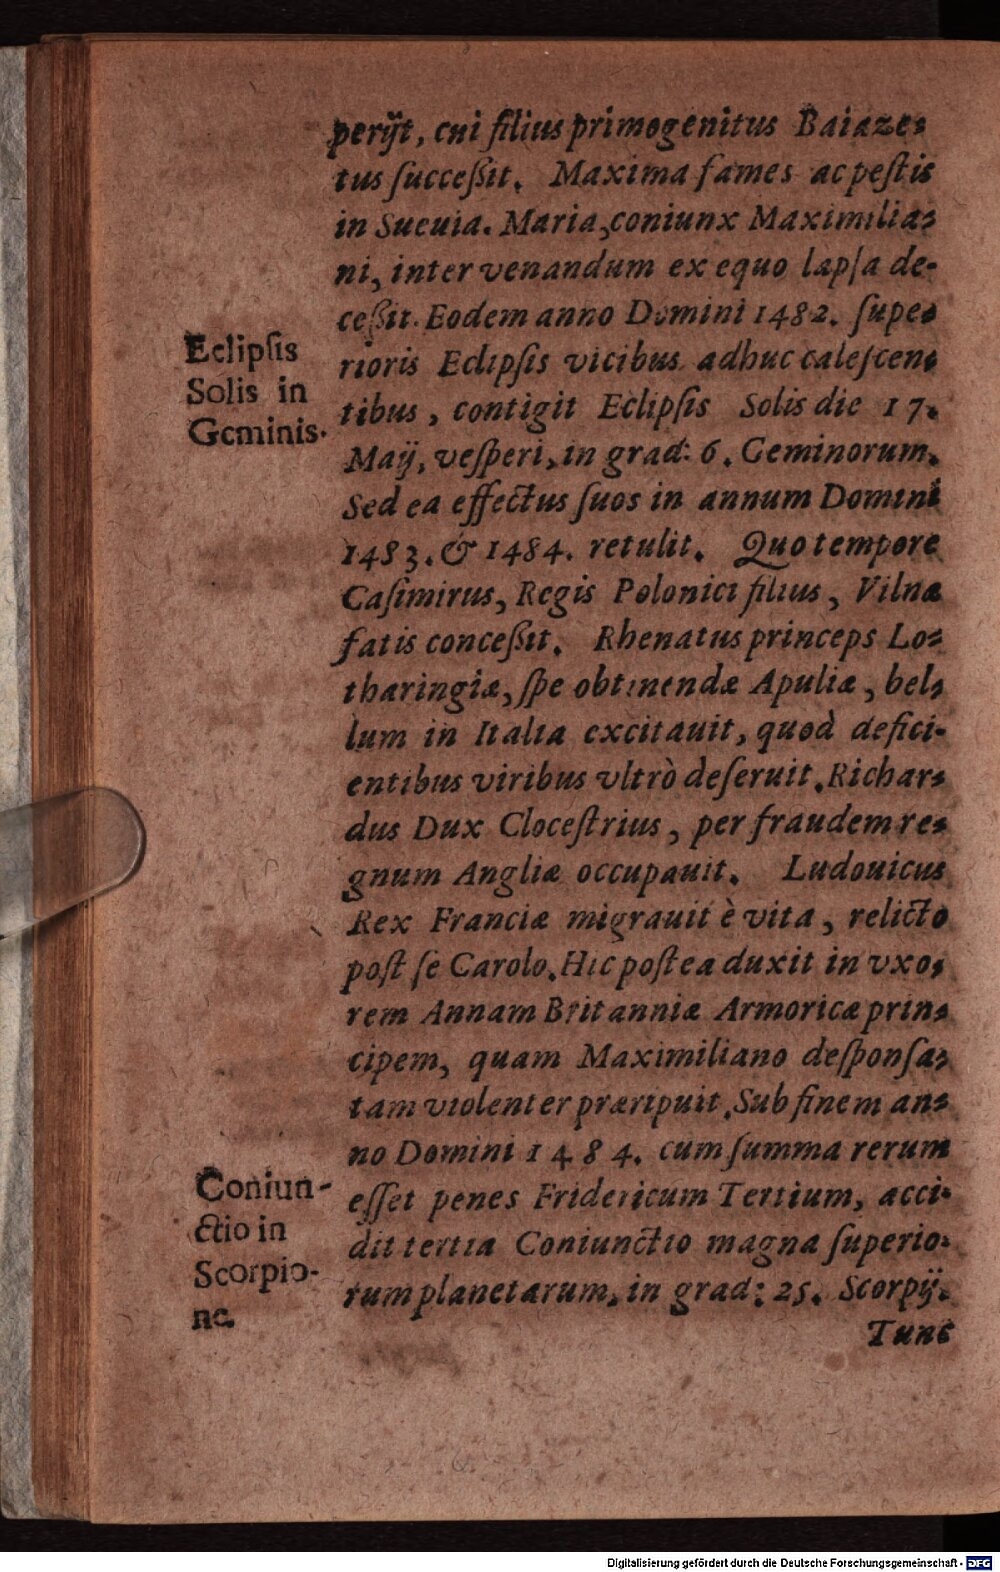 perijt, cui filius primogenitus Baiaze-
tus succeßit. Maxima fames ac pestis
in Sueuia. Maria, coniunx Maximilia-
ni, inter venandum ex equo lapsa de-
ceßit. Eodem anno Domini 1482. supe-
rioris Eclipsis vicibus adhuc calescen-
tibus, contigit Eclipsis Solis die 17.
Maij, vesperi, in grad: 6. Geminorum.
Sed ea effectus suos in annum Domini
1483. & 1484. retulit. Quo tempore
Casimirus, Regis Polonici filius, Vilnæ
fatis conceßit. Rhenatus princeps Lo-
tharingiæ, spe obtinendæ Apuliæ, bel-
lum in Italia excitauit, quod defici-
entibus viribus vltrò deseruit. Richar-
dus Dux Clocestrius, per fraudem re-
gnum Angliæ occupauit. Ludouicus
Rex Franciæ migrauit è vita, relicto
post se Carolo. Hic postea duxit in vxo-
rem Annam Britanniæ Armoricæ prin-
cipem, quam Maximiliano desponsa-
tam violenter præripuit. Sub finem an-
no Domini 1484. cum summa rerum
esset penes Fridericum Tertium, acci-
dit tertia Coniunctio magna superio-
rum planetarum, in grad: 25. Scorpij.
Tunc
Eclipsis
Solis in
Geminis.
Coniun-
ctio in
Scorpio-
ne.
Digitalisierung gefördert durch die Deutsche Forschungsgemeinschaft - DFG